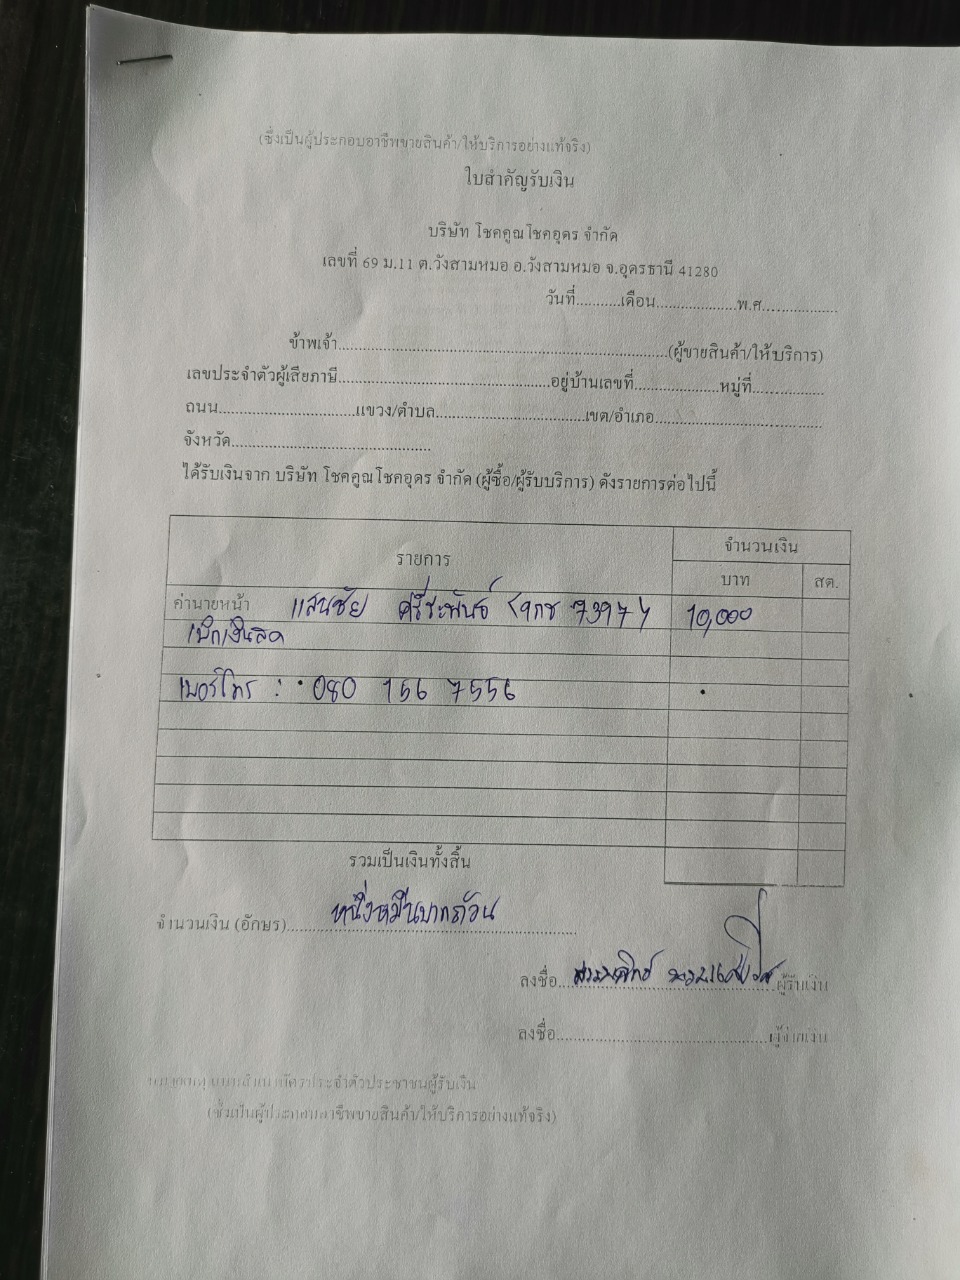 (ซึ่งเป็นผู้ประกอบอาชีพขายสินค้า/ให้บริการอย่างแท้จริง)
ใบสำคัญรับเงิน
บริษัท โชคคูณโชคอุดร จำกัด
เลขที่ 69 ม.11 ต.วังสามหมอ อ.วังสามหมอ จ.อุดรธานี 41280
วันที่...........เดือน...................พ.ศ..................
ข้าพเจ้า...............................................................................(ผู้ขายสินค้า/ให้บริการ)
เลขประจำตัวผู้เสียภาษี..................................................อยู่บ้านเลขที่....................หมู่ที่.................
ถนน.................................แขวง/ตำบล....................................เขต/อำเภอ........................................
จังหวัด................................................
ได้รับเงินจาก บริษัท โชคคูณโชคอุดร จำกัด (ผู้ซื้อ/ผู้รับบริการ) ดังรายการต่อไปนี้
รายการ จำนวนเงิน
บาท สต.
ค่านายหน้า แสนชัย ศรีระพันธ์ 10,000
เบิกเงินสด
เบอร์โทร : 080 156 7556
รวมเป็นเงินทั้งสิ้น
จำนวนเงิน (อักษร) หนึ่งหมื่นบาทถ้วน
ลงชื่อ ผู้รับเงิน
ลงชื่อ..................................................ผู้จ่ายเงิน
ประจำตัวประชาชนผู้รับเงิน
(ซึ่งเป็นผู้ประกอบอาชีพขายสินค้า/ให้บริการอย่างแท้จริง)